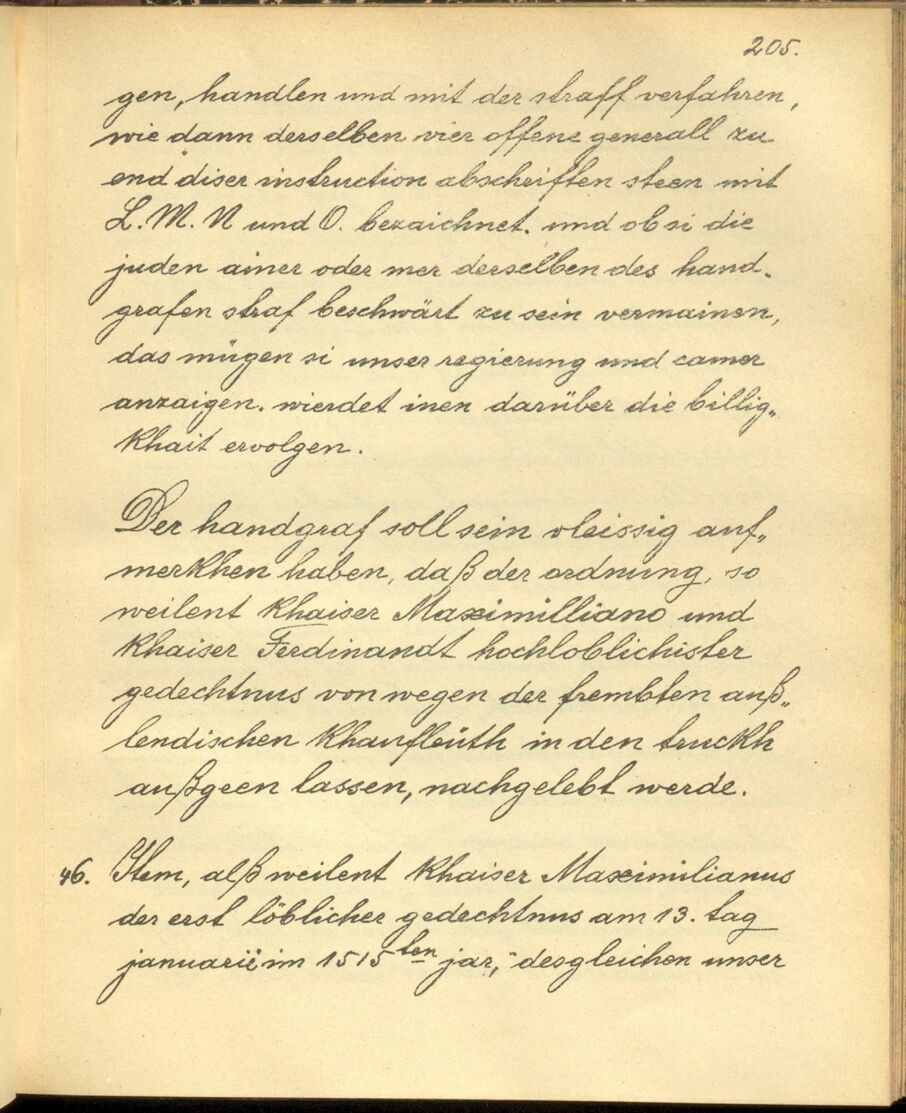 205.
gen, handlen und mit der straff verfahren,
wie dann derselben vier offene generall zu
end diser instruction abschrifften steen mit
L. M. N und O. bezaichnet. und ob si die
juden ainer oder mer derselben des hand-
grafen straf beschwärt zu sein vermainen,
das mügen si unser regierung und camer
anzaigen. wierdet inen darüber die billig„
khait ervolgen.
Der handgraf soll sein vleissig auf„
merkhen haben, daß der ordnung, so
weilent khaiser Maximilliano und
khaiser Ferdinandt hochloblichister
gedechtnus von wegen der frembten auß„
lendischen khaufleüth in den truckh
außgeen lassen, nachgelebt werde.
46. Item, alß weilent khaiser Maximilianus
der erst löblicher gedechtnus am 13. tag
januarii im 1515ten jar, desgleichen unser